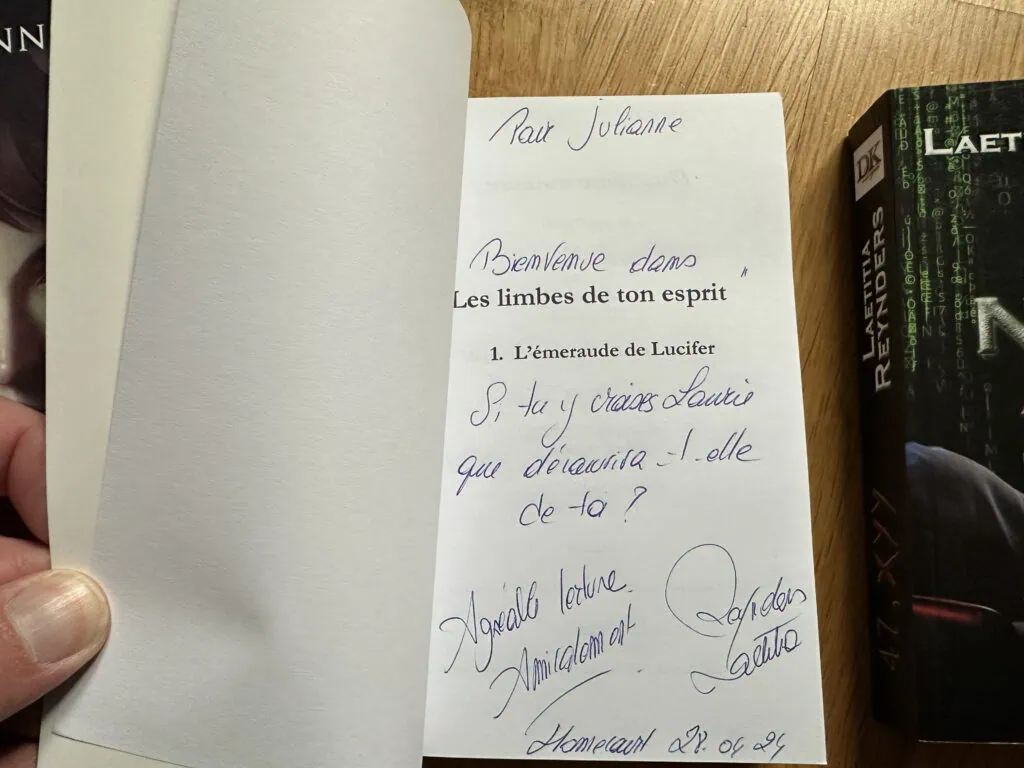 NN
Pour Julianne
Bienvenue dans "
Les limbes de ton esprit
1. L'émeraude de Lucifer
Si tu y croises Laurie
que découvrira-t-elle
de toi ?
Agréable lecture.
Amicalement
Reynders
Laetitia
Homécourt 28.04 24
DK
LAETITIA
REYNDERS
47, XYY
LAET
N